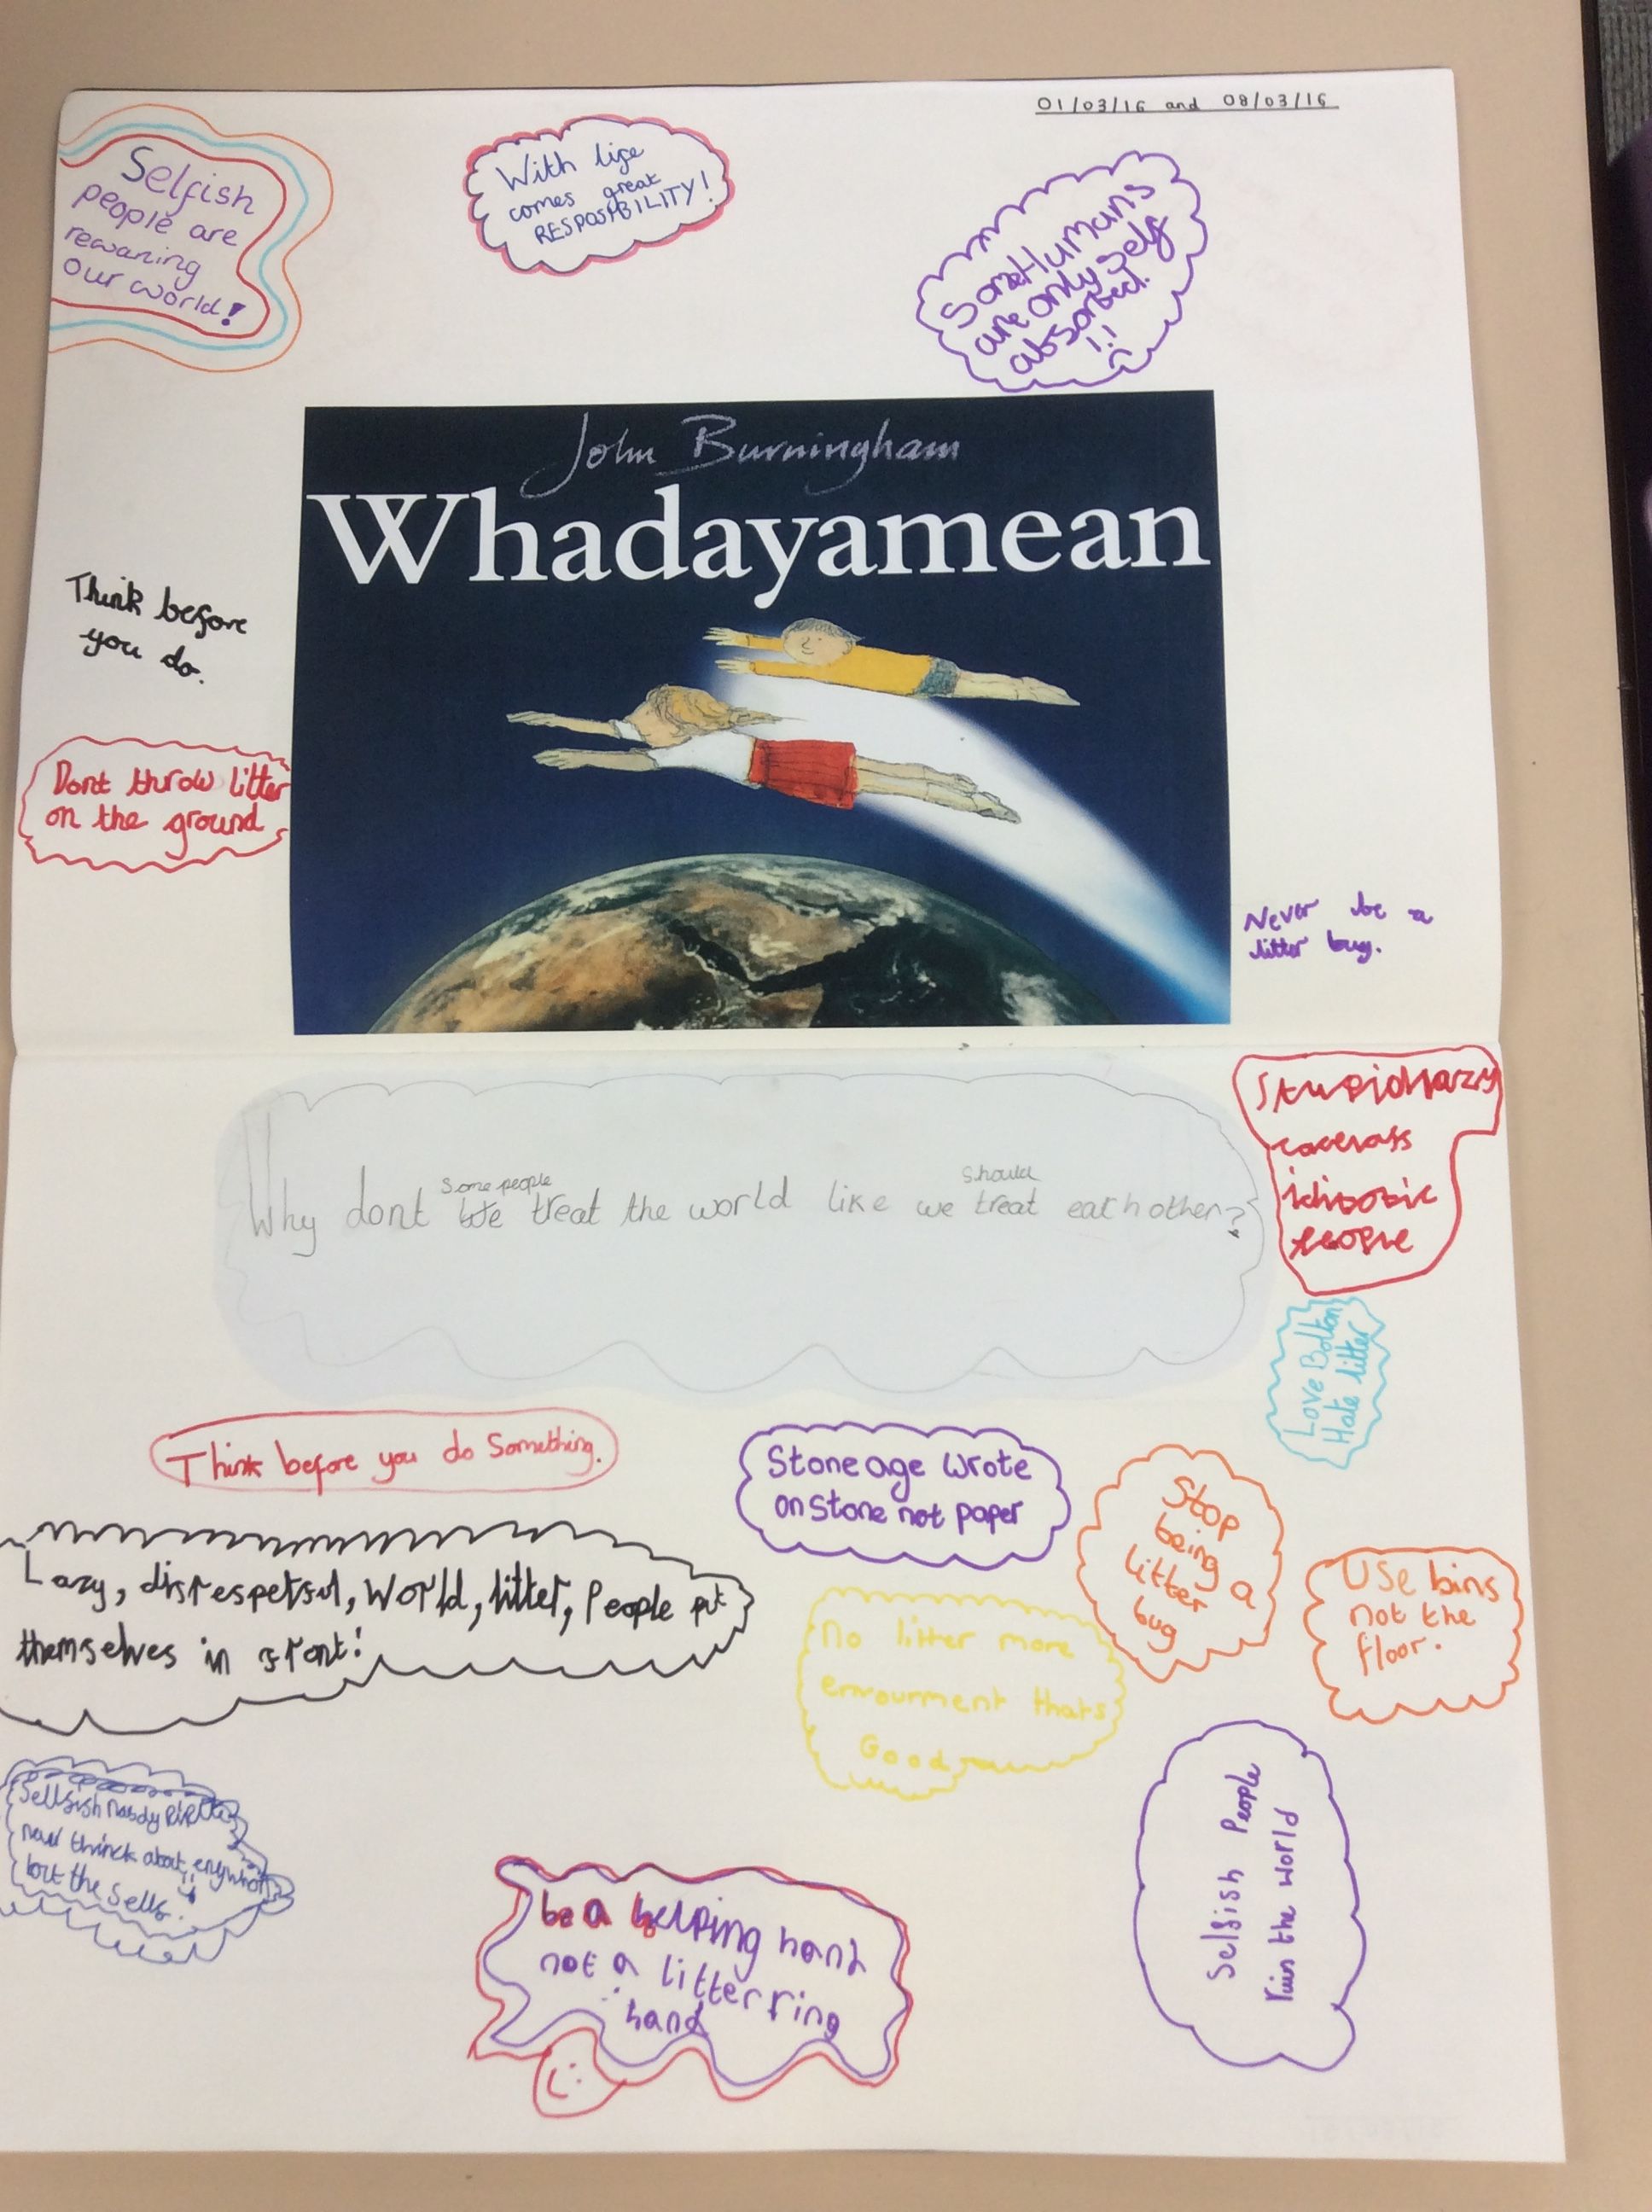 01/03/16 and 08/03/16
Selfish
people are
rewaning
our world!
With life
comes great
RESPOSIBILITY!
Some Humans
are only self
absorbed.
!!
John Burningham
Whadayamean
Think before
you do.
Dont throw litter
on the ground
Never be a
litter bug.
some people should
Why dont We treat the world like we treat each other?
people
Love Bolton
Hate litter
Think before you do Something.
Stone age Wrote
on Stone not paper
Stop
being a
litter
bug
Use bins
not the
floor.
Lazy, disrespetful, World, litter, People put
themselves in front!
No litter more
thats
Good
Sellfish
thinck about
but the sells.
Selfish People
ruin the world
be a helping hand
not a litterring
hand